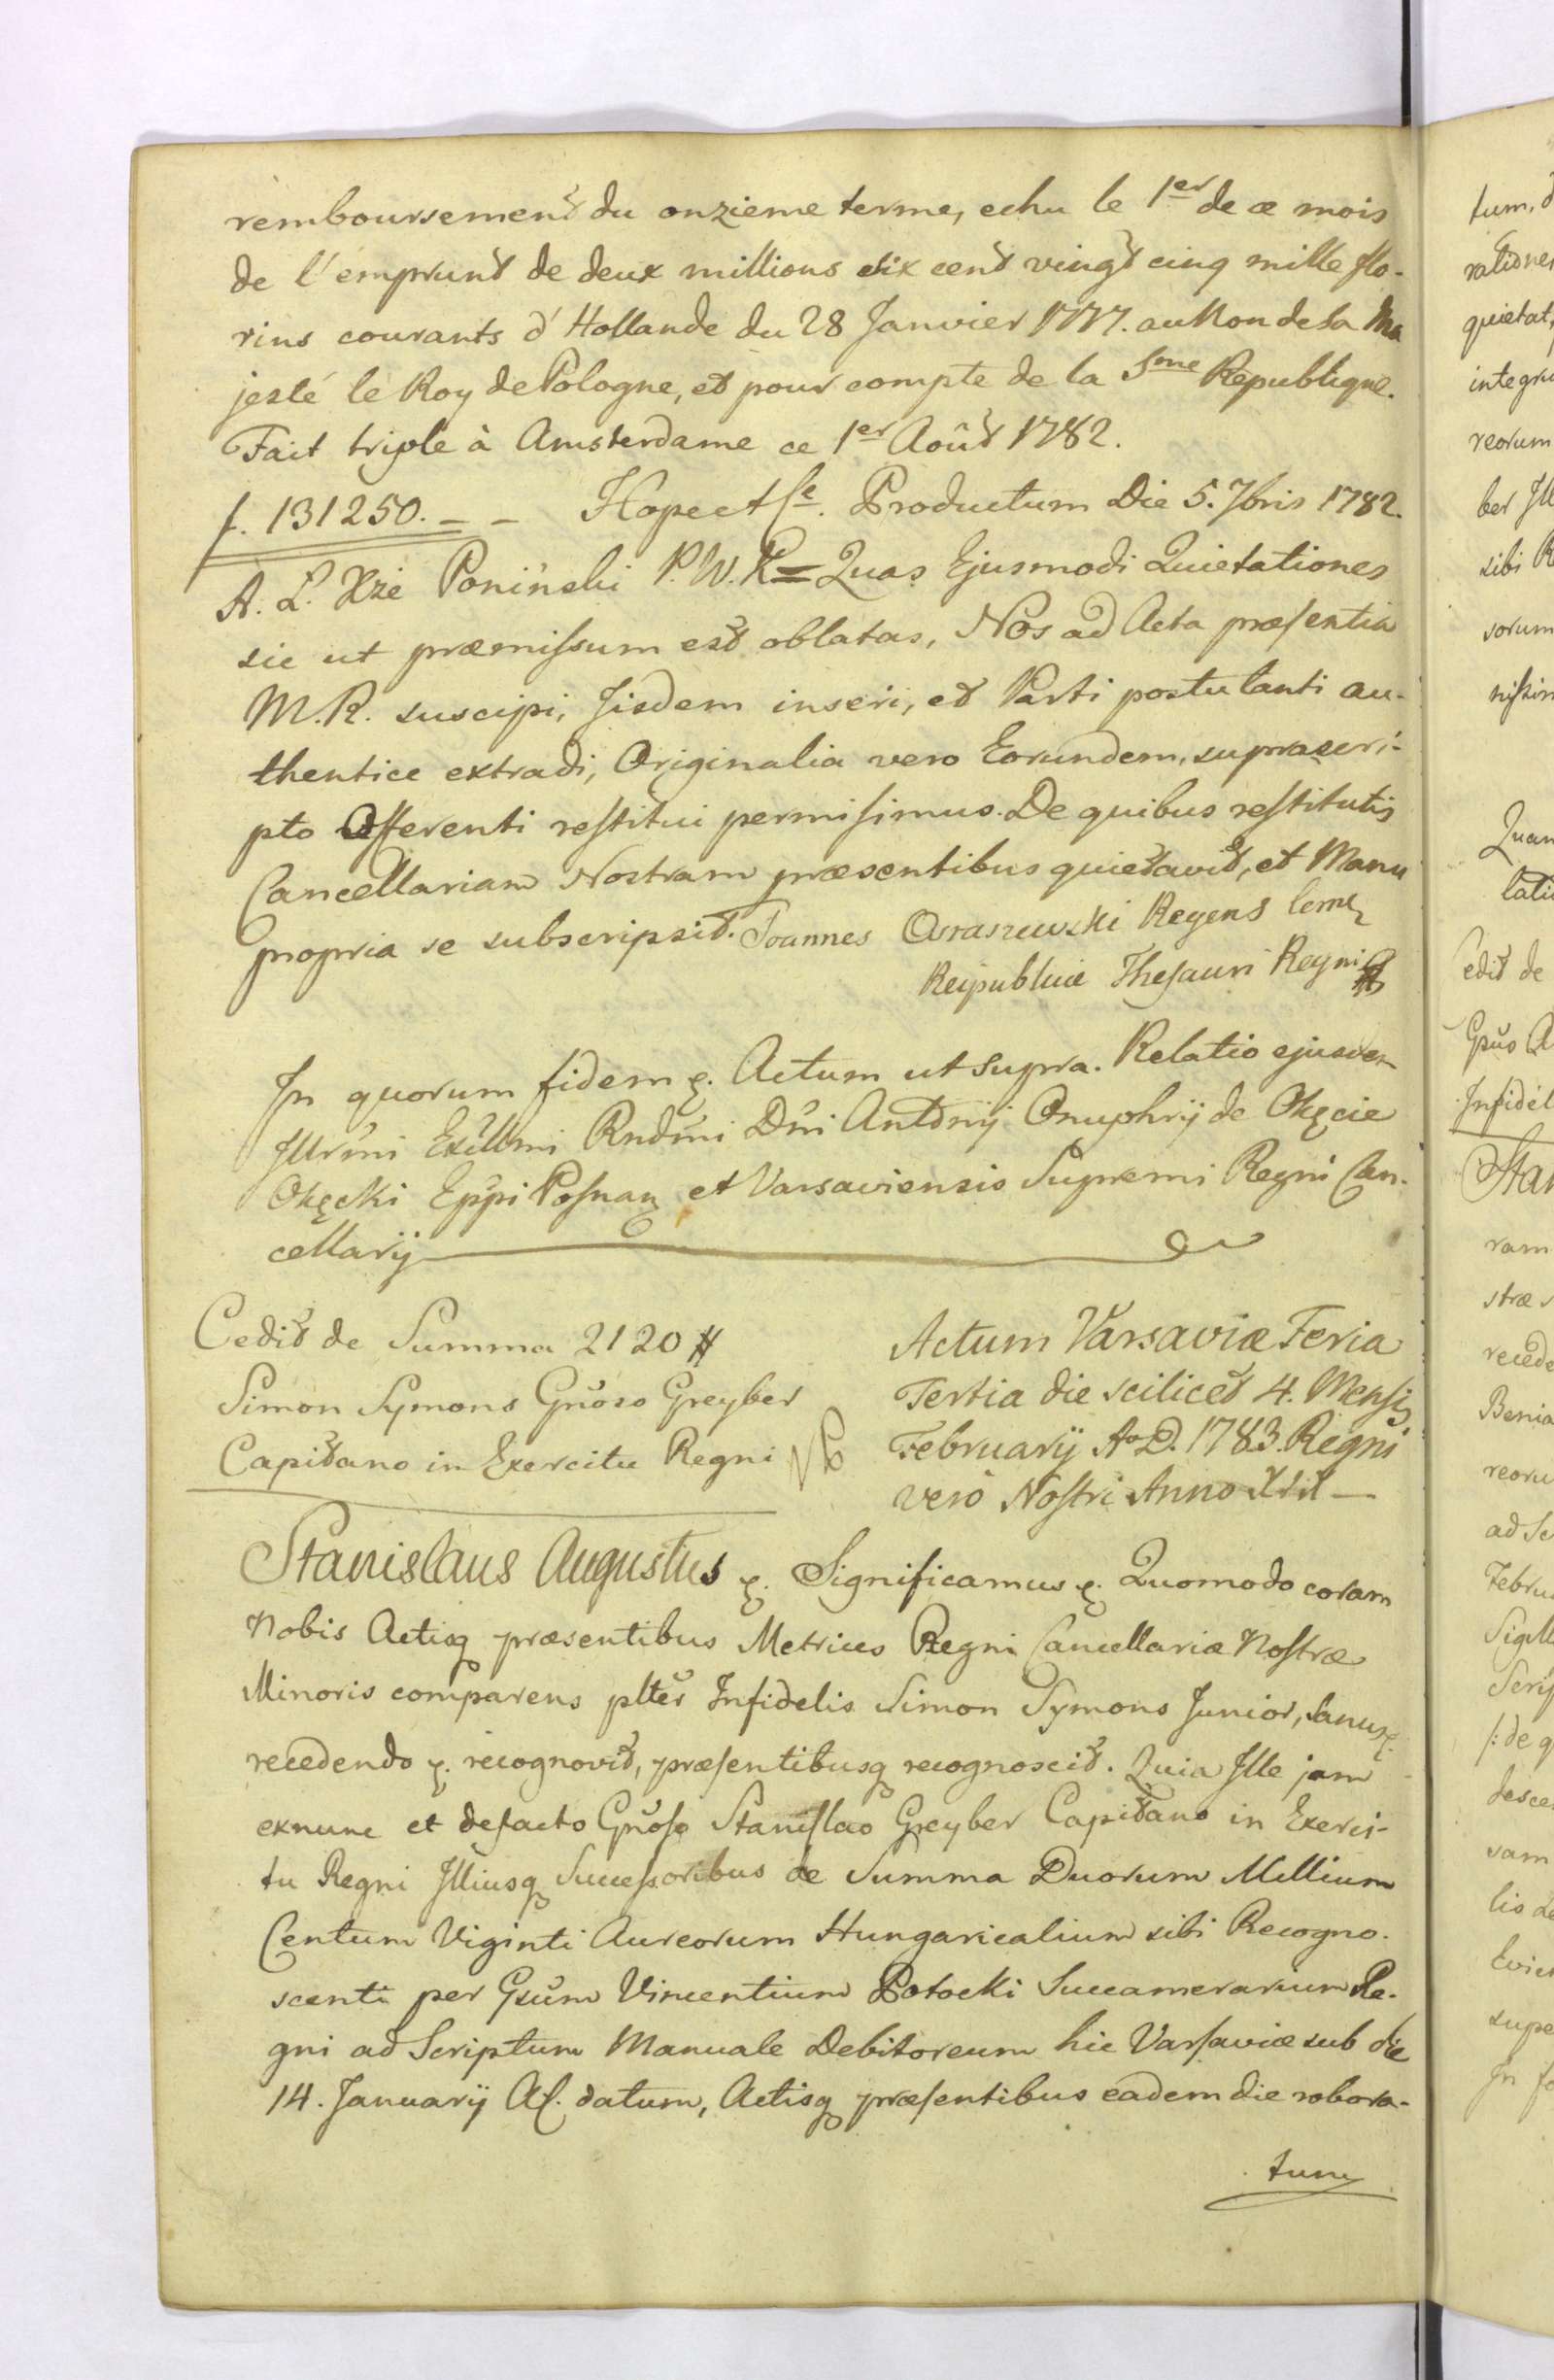 remboursement du onzieme terme, echu le 1er de ce mois
de l'emprunt de deux millions six cent vingt cinq mille flo-
rins courants d'Hollande du 28 Janvier 1777. au Nom de Sa Ma
jesté le Roy de Pologne, et pour compte de la Sme Republique.
Fait triple à Amsterdame ce 1er Août 1782.
f. 131250. = - Hope et Ce. Productum Die 5. 7bris 1782.
A. Ł. Xże Poniński P. W. K = Quas Ejusmodi Quietationes
sic ut præmissum est oblatas, Nos ad Acta præsentia
M. R. suscipi, Iisdem inseri, et Parti postulanti au-
thentice extradi, Originalia vero Eorundem, suprascri-
pto Offerenti restitui permisimus. De quibus restitutis
Cancellariam Nostram præsentibus quietavit, et Manu
propria se subscripsit. Joannes Regens
Reipublicæ Thesauri Regni
In quorum fidem &. Actum ut supra. Relatio ejusdem
Illrmi Exllmi Rndmi Dni Antonij Onuphrij de Okęcie
Okęcki Eppi Posnan et Varsaviensis Supremi Regni Can-
cellarij
Cedit de Summa 2120 #
Simon Symons Gnoso Greyber
Capitano in Exercitu Regni
Actum Varsaviæ Feria
Tertia die scilicet 4. Mensis
Februarij Ao D. 1783. Regni
vero Nostri Anno XIX
Stanislaus Augustus &. Significamus &. Quomodo coram
Nobis Actisq præsentibus Metrices Regni Cancellariæ Nostræ
Minoris comparens plter Infidelis Simon Symons Junior, Sanus &.
recedendo &. recognovit, præsentibusq recognoscit. Quia Ille jam
exnunc et defacto Gnoso Stanislao Greyber Capitano in Exerci-
tu Regni Illiusq Successoribus de Summa Duorum Millium
Centum Viginti Aureorum Hungaricalium sibi Recogno-
scenti per Gsum Vincentium Potocki Succamerarium Re-
gni ad Scriptum Manuale Debitoreum hic Varsaviæ sub die
14. Januarij Af. datum, Actisq præsentibus eadem die robora-
tum
tum, d
rationes
quietat,
integru
reorum
ber Ill
sibi R
sorum
nissim
Quam
lati
Cedit de
Gnus A
Infidel
Stan
ram
stræ s
recede
Benia
reoru
ad Sc
Febru
Sigill
Scrip
/: de q
desce
sam
lis de
Evic
supe
In fo